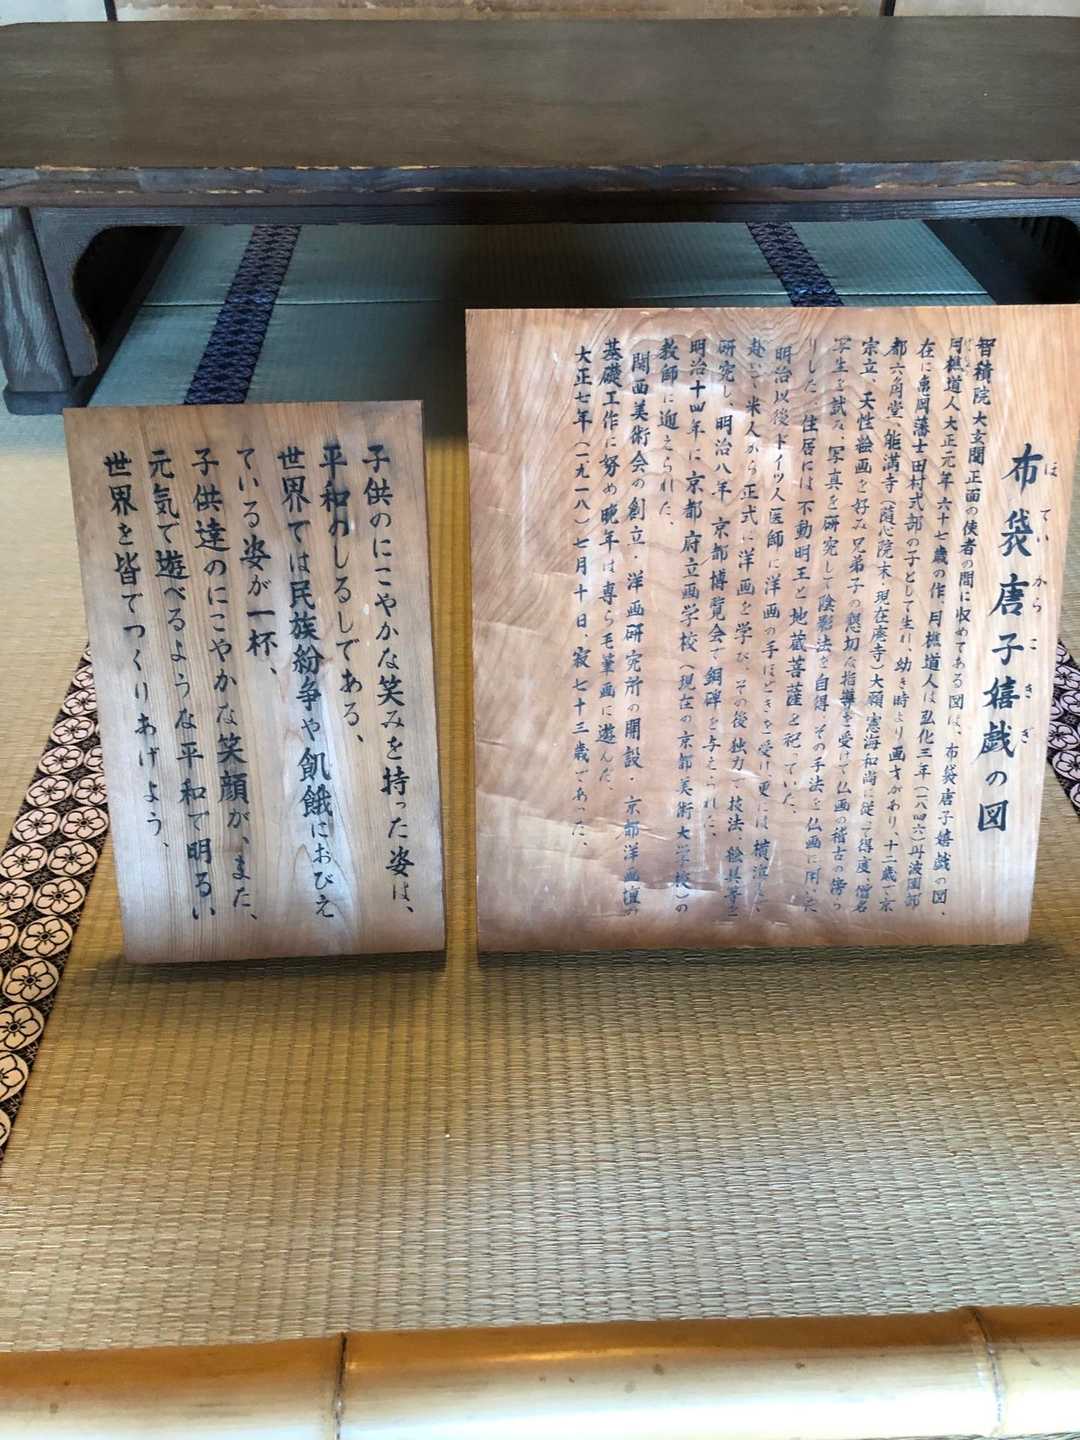 布袋唐子嬉戯の図
ほていからこきぎ
智積院大玄関正面の使者の間に収めてある図は、布袋唐子嬉戯の図、
月樵道人大正元年六十七歳の作、月樵道人は弘化三年(一八四六)丹波国船
在に亀岡藩士田村式部の子として生れ、幼き時より画才があり、十二歳で京
都六角堂能満寺(葭心院末、現在廃寺)大願憲海和尚に従って得度、僧名
宗立、天性絵画を好み兄弟子の懇切な指導を受けて仏画の稽古の傍ら
写生を試み、写真を研究して陰影法を自得、その手法を仏画に用いた
りした。住居には不動明王と地蔵菩薩を祀っていた。
明治以後ドイツ人医師に洋画の手ほどきを受け、更には横浜
赴いて米人から正式に洋画を学び、その後独力で技法、絵具等を
研究し、明治八年京都博覧会で銅碑を与えられた、
明治十四年に京都府立画学校(現在の京都美術大学校)の
教師に迎えられた、
関西美術会の創立・洋画研究所の開設・京都洋画壇の
基礎工作に努め晩年は専ら毛筆画に遊んだ、
大正七年(一九一八)七月十日、寂七十三歳であった、
子供のにこやかな笑みを持った姿は、
平和のしるしである、
世界では民族紛争や飢餓におびえ
ている姿が一杯、
子供達のにこやかな笑顔が、また、
元気で遊べるような平和で明るい
世界を皆でつくりあげよう、